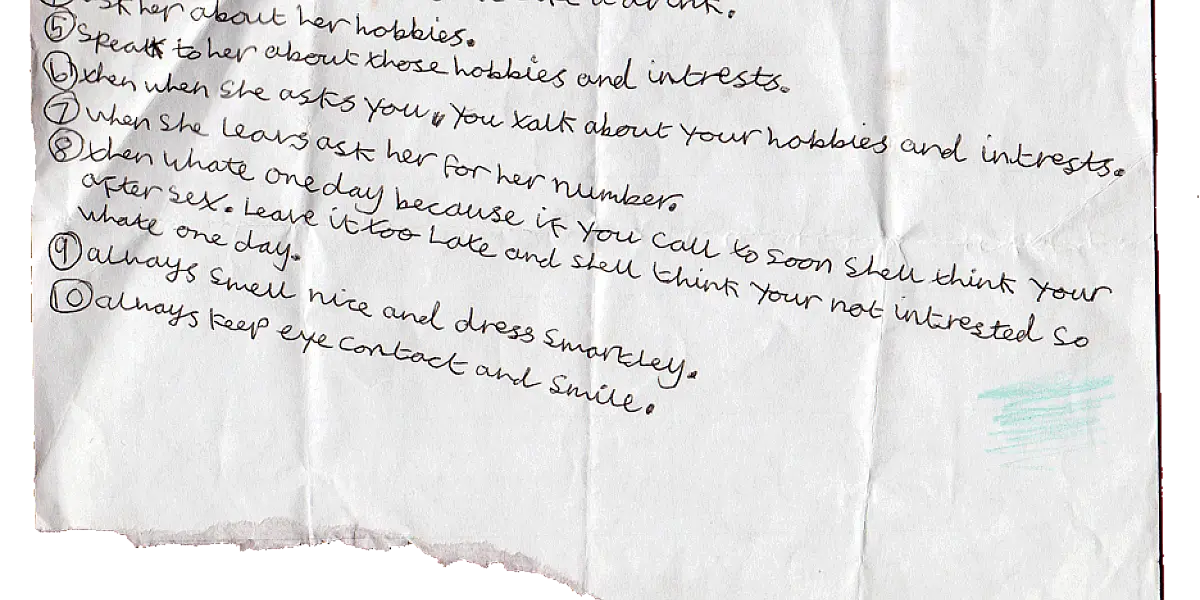 a drink.
ask her about her hobbies.
5 Speak to her about those hobbies and intrests.
6 then when she asks you, You talk about your hobbies and intrests.
7 when she leavs ask her for her number.
8 then whate one day because if you call to soon shell think your
after sex. Leave it too Late and shell think your not intrested so
whate one day.
9 always smell nice and dress smartley.
10 always keep eye contact and smile.